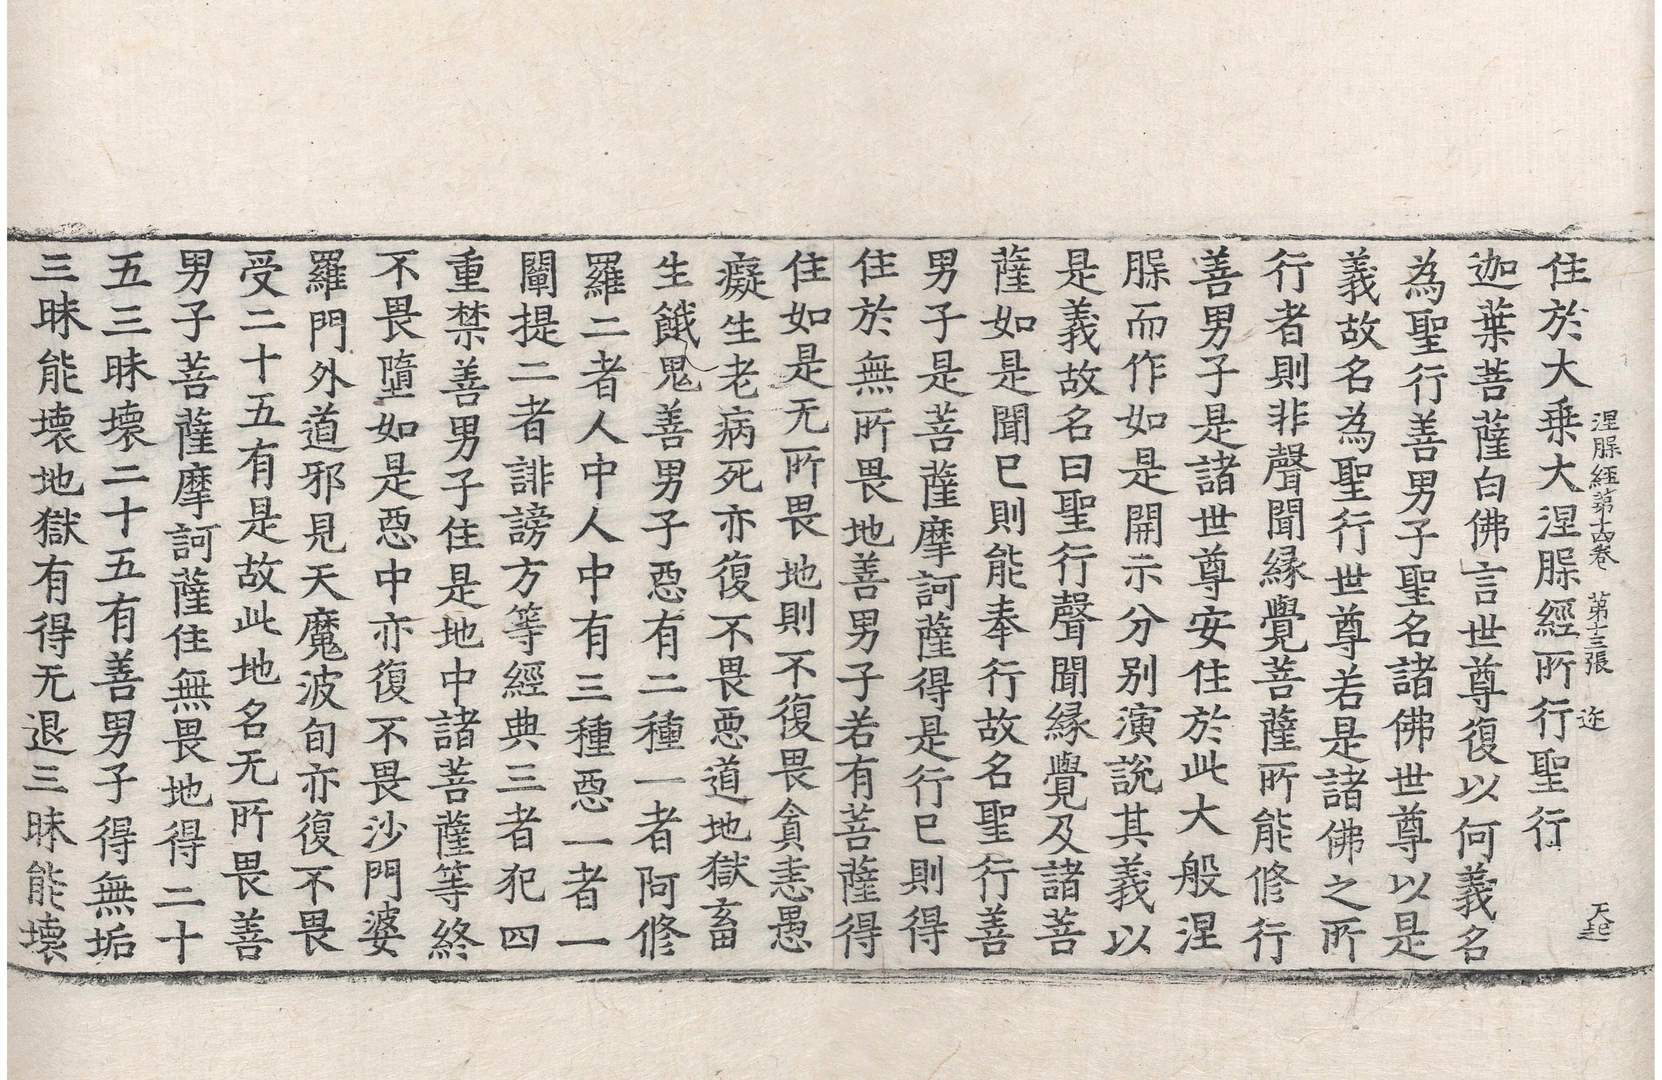 涅槃經第十四卷 第十三張 迩 天起
住於大乘大涅槃經所行聖行
迦葉菩薩白佛言世尊復以何義名
為聖行善男子聖名諸佛世尊以是
義故名為聖行世尊若是諸佛之所
行者則非聲聞緣覺菩薩所能修行
善男子是諸世尊安住於此大般涅
槃而作如是開示分別演說其義以
是義故名曰聖行聲聞緣覺及諸菩
薩如是聞已則能奉行故名聖行善
男子是菩薩摩訶薩得是行已則得
住於無所畏地善男子若有菩薩得
住如是无所畏地則不復畏貪恚愚
癡生老病死亦復不畏惡道地獄畜
生餓鬼善男子惡有二種一者阿修
羅二者人中人中有三種惡一者一
闡提二者誹謗方等經典三者犯四
重禁善男子住是地中諸菩薩等終
不畏墮如是惡中亦復不畏沙門婆
羅門外道邪見天魔波旬亦復不畏
受二十五有是故此地名无所畏善
男子菩薩摩訶薩住無畏地得二十
五三昧壞二十五有善男子得無垢
三昧能壞地獄有得无退三昧能壞